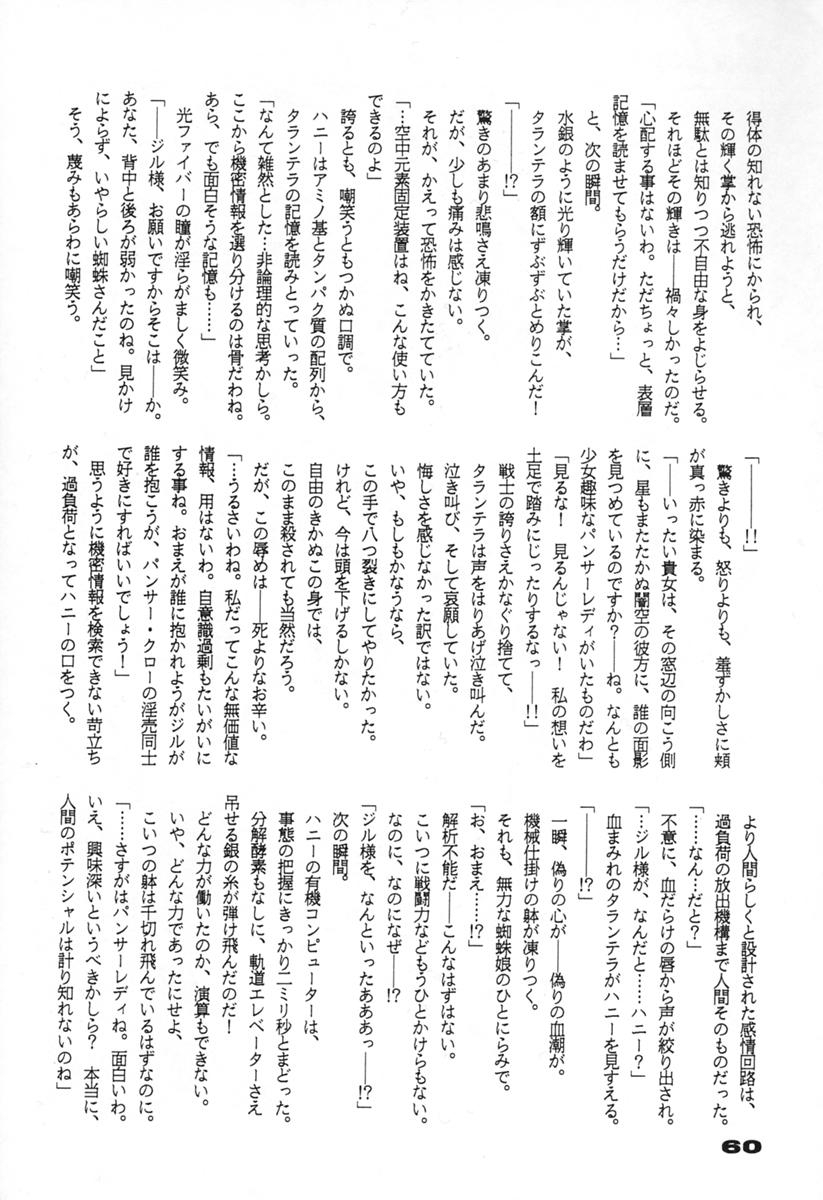 得体の知れない恐怖にかられ、
その輝く掌から逃れようと、
無駄とは知りつつ不自由な身をよじらせる。
それほどその輝きは――禍々しかったのだ。
「心配する事はないわ。ただちょっと、表層
記憶を読ませてもらうだけだから…」
と、次の瞬間。
水銀のように光り輝いていた掌が、
タランテラの額にずぶずぶとめりこんだ!
「――――!?」
驚きのあまり悲鳴さえ凍りつく。
だが、少しも痛みは感じない。
それが、かえって恐怖をかきたてていた。
「…空中元素固定装置はね、こんな使い方も
できるのよ」
誇るとも、嘲笑うともつかぬ口調で。
ハニーはアミノ基とタンパク質の配列から、
タランテラの記憶を読みとっていった。
「なんて雑然とした…非論理的な思考かしら。
ここから機密情報を選り分けるのは骨だわね。
あら、でも面白そうな記憶も……」
光ファイバーの瞳が淫らがましく微笑み。
「――ジル様、お願いですからそこは――か。
あなた、背中と後ろが弱かったのね。見かけ
によらず、いやらしい蜘蛛さんだこと」
そう、蔑みもあらわに嘲笑う。
「――――!!」
驚きよりも、怒りよりも、羞ずかしさに頬
が真っ赤に染まる。
「――いったい貴女は、その窓辺の向こう側
に、星もまたたかぬ闇空の彼方に、誰の面影
を見つめているのですか?――ね。なんとも
少女趣味なパンサーレディがいたものだわ」
「見るな! 見るんじゃない! 私の想いを
土足で踏みにじったりするなっ――!!」
戦士の誇りさえかなぐり捨てて、
タランテラは声をはりあげ泣き叫んだ。
泣き叫び、そして哀願していた。
悔しさを感じなかった訳ではない。
いや、もしもかなうなら、
この手で八つ裂きにしてやりたかった。
けれど、今は頭を下げるしかない。
自由のきかぬこの身では、
このまま殺されても当然だろう。
だが、この辱めは――死よりなお辛い。
「…うるさいわね。私だってこんな無価値な
情報、用はないわ。自意識過剰もたいがいに
する事ね。おまえが誰に抱かれようがジルが
誰を抱こうが、パンサー・クローの淫売同士
で好きにすればいいでしょう!」
思うように機密情報を検索できない苛立ち
が、過負荷となってハニーの口をつく。
より人間らしくと設計された感情回路は、
過負荷の放出機構まで人間そのものだった。
「……なん…だと?」
不意に、血だらけの唇から声が絞り出され。
「…ジル様が、なんだと……ハニー?」
血まみれのタランテラがハニーを見すえる。
「――――!?」
一瞬、偽りの心が――偽りの血潮が。
機械仕掛けの躰が凍りつく。
それも、無力な蜘蛛娘のひとにらみで。
「お、おまえ……!?」
解析不能だ――こんなはずはない。
こいつに戦闘力などもうひとかけらもない。
なのに、なのになぜ――!?
「ジル様を、なんといったあああっ――!?」
次の瞬間。
ハニーの有機コンピューターは、
事態の把握にきっかり二ミリ秒とまどった。
分解酵素もなしに、軌道エレベーターさえ
吊せる銀の糸が弾け飛んだのだ!
どんな力が働いたのか、演算もできない。
いや、どんな力であったにせよ、
こいつの躰は千切れ飛んでいるはずなのに。
「……さすがはパンサーレディね。面白いわ。
いえ、興味深いというべきかしら? 本当に、
人間のポテンシャルは計り知れないのね」
60